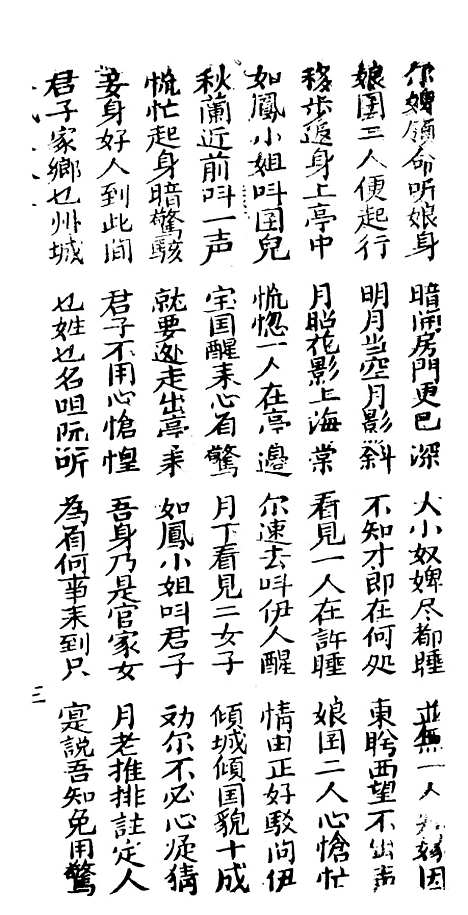 尔婢領命听娘身 暗開房門更已深 大小奴婢尽都睡 並無一人知緣因
娘囝三人便起行 明月当空月影斜 不知才郎在何処 東盻西望不出声
移步進身上亭中 月照花影上海棠 看見一人在許睡 娘囝二人心愴忙
如鳳小姐叫囝兒 恍惚一人在亭邊 尔速去叫伊人醒 情由正好駁问伊
秋蘭近前叫一声 宝国醒来心着驚 月下看見二女子 傾城傾国貌十成
慌忙起身暗驚駭 就要逃走出亭来 如鳳小姐叫君子 劝尔不必心疑猜
妾身好人到此间 君子不用心愴惶 吾身乃是官家女 月老推排註定人
君子家鄉乜州城 乜姓乜名咀阮听 為着何事来到只 寔說吾知免用驚
三